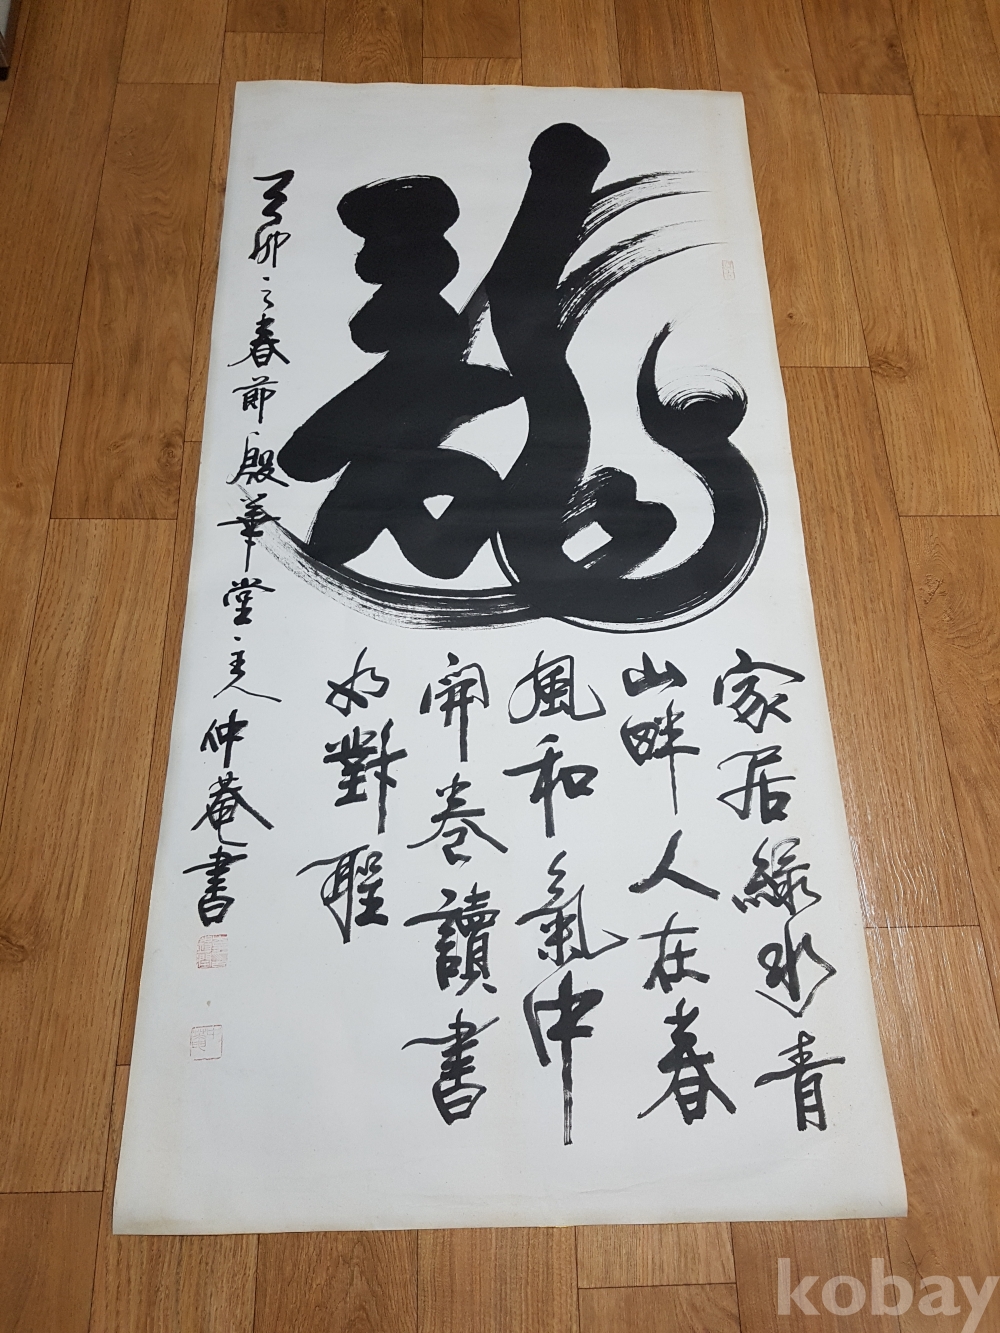 龍
家居綠水青
山畔人在春
風和氣中
開卷讀書
如對聖
卯之春節殷華堂主人仲菴書
kobay